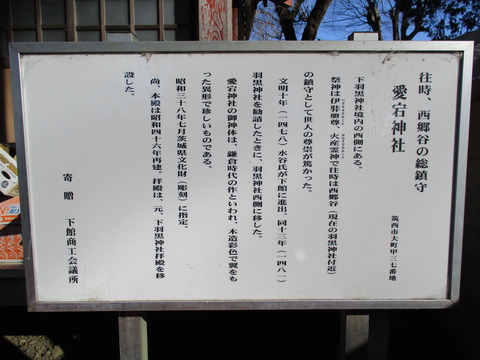 往時、西郷谷の総鎮守
愛宕神社
筑西市大町甲三七番地
下羽黒神社境内の西側にある。
祭神は伊弉册尊、火産霊神で往時は西郷谷(現在の羽黒神社付近)
の鎮守として世人の尊崇が篤かった。
文明十年(一四七八)水谷氏が下館に進出、同十三年(一四八一)
羽黒神社を勧請したときに、羽黒神社西側に移した。
愛宕神社の御神体は、鎌倉時代の作といわれ、木造彩色で翼をも
った異形で珍しいものである。
昭和三十八年七月茨城県文化財(彫刻)に指定。
尚、本殿は昭和四十六年再建。拝殿は、元、下羽黒神社拝殿を移
設した。
寄贈 下館商工会議所